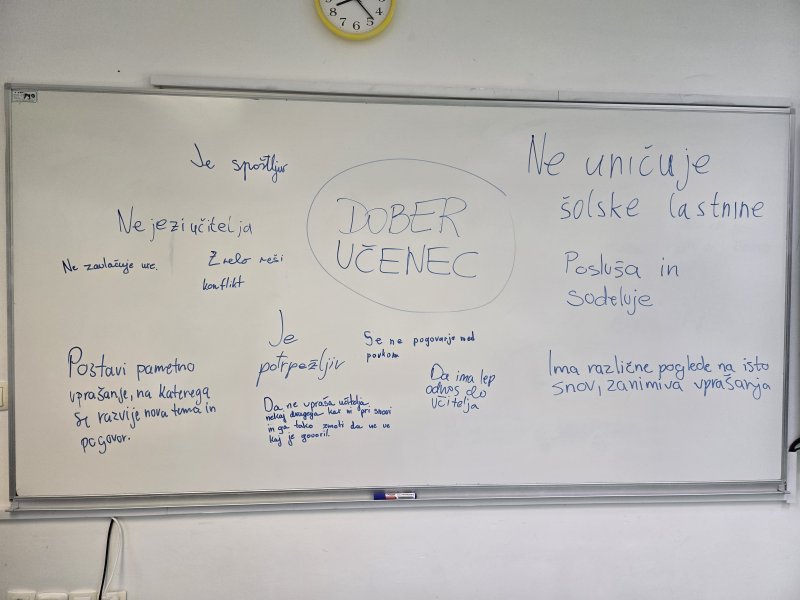 8 7 6 5 4
Je spoštljiv
DOBER
UČENEC
Ne uničuje
šolske lastnine
Ne jezi učitelja
Ne zavlačuje ure.
Zrelo reši
konflikt
Posluša in
sodeluje
Je
potrpežljiv
Se ne pogovarja med
poukom
Postavi pametno
vprašanje, na katerega
se razvije nova tema in
pogovor.
Da ima lep
odnos do
učitelja
Ima različne poglede na isto
snov, zanimiva vprašanja
Da ne vpraša učitelja
nekaj drugega kar ni pri snovi
in ga tako zmoti da ne ve
kaj je govoril.